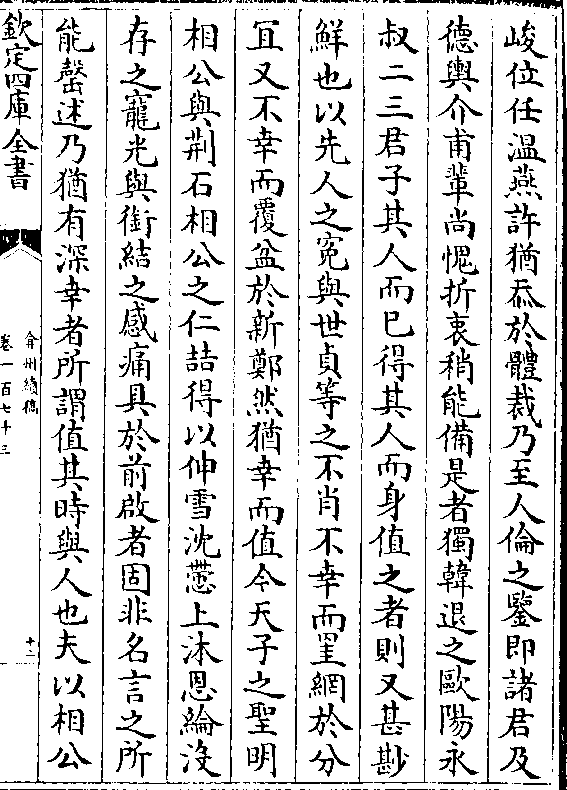 峻位任溫燕許猶忝於體裁乃至人倫之鑒即諸君及
德輿介甫輩尚愧折衷稍能備是者獨韓退之歐陽永
叔二三君子其人而已得其人而身值之者則又甚尠
鮮也以先人之寃與世貞等之不肖不幸而罣網於分
宜又不幸而覆盆於新鄭然猶幸而值今天子之聖明
相公與荆石相公之仁喆得以伸雪沈懣上沐恩綸沒
存之寵光與銜結之感痛具於前啟者固非名言之所
能罄述乃猶有深幸者所謂值其時與人也夫以相公
欽定四庫全書
弇州續稿
卷一百七十三
十二